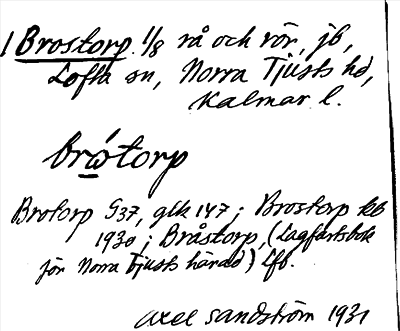 1 Brostorp. 1/8 rå och rör, jb,
Lofta sn, Norra Tjusts hd,
Kalmar l.
brώtorp
Brotorp G37, glk 147; Brostorp kb
1930; Bråstorp, (Lagfartsbok
för Norra Tjusts härad) Lfb.
Axel Sandström 1931